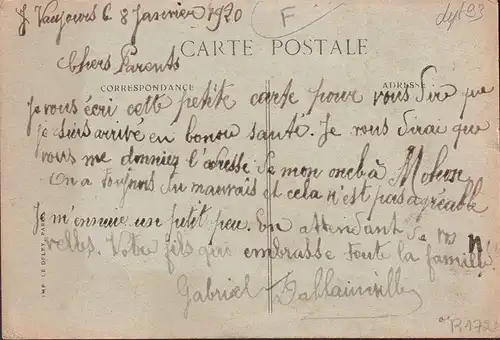 Vaujours le 8 Janvier 1920
F
dyt93
CARTE POSTALE
Chers Parents
CORRESPONDANCE
ADRESSE
Je vous écri cette petite carte pour vous dire que
je suis arrivé en bonou santé. Je vous dirai que
vous me donniez l'adresse de mon oncl à Mohon
On a toujours du mauvais et cela n'est pas agréable
Je m'ennuie un petit peu. En attendant de vos n
velles. Votre fils qui embrasse toute la famille
Gabriel Dallainville
IMP. LE DELEY, PARIS
R172